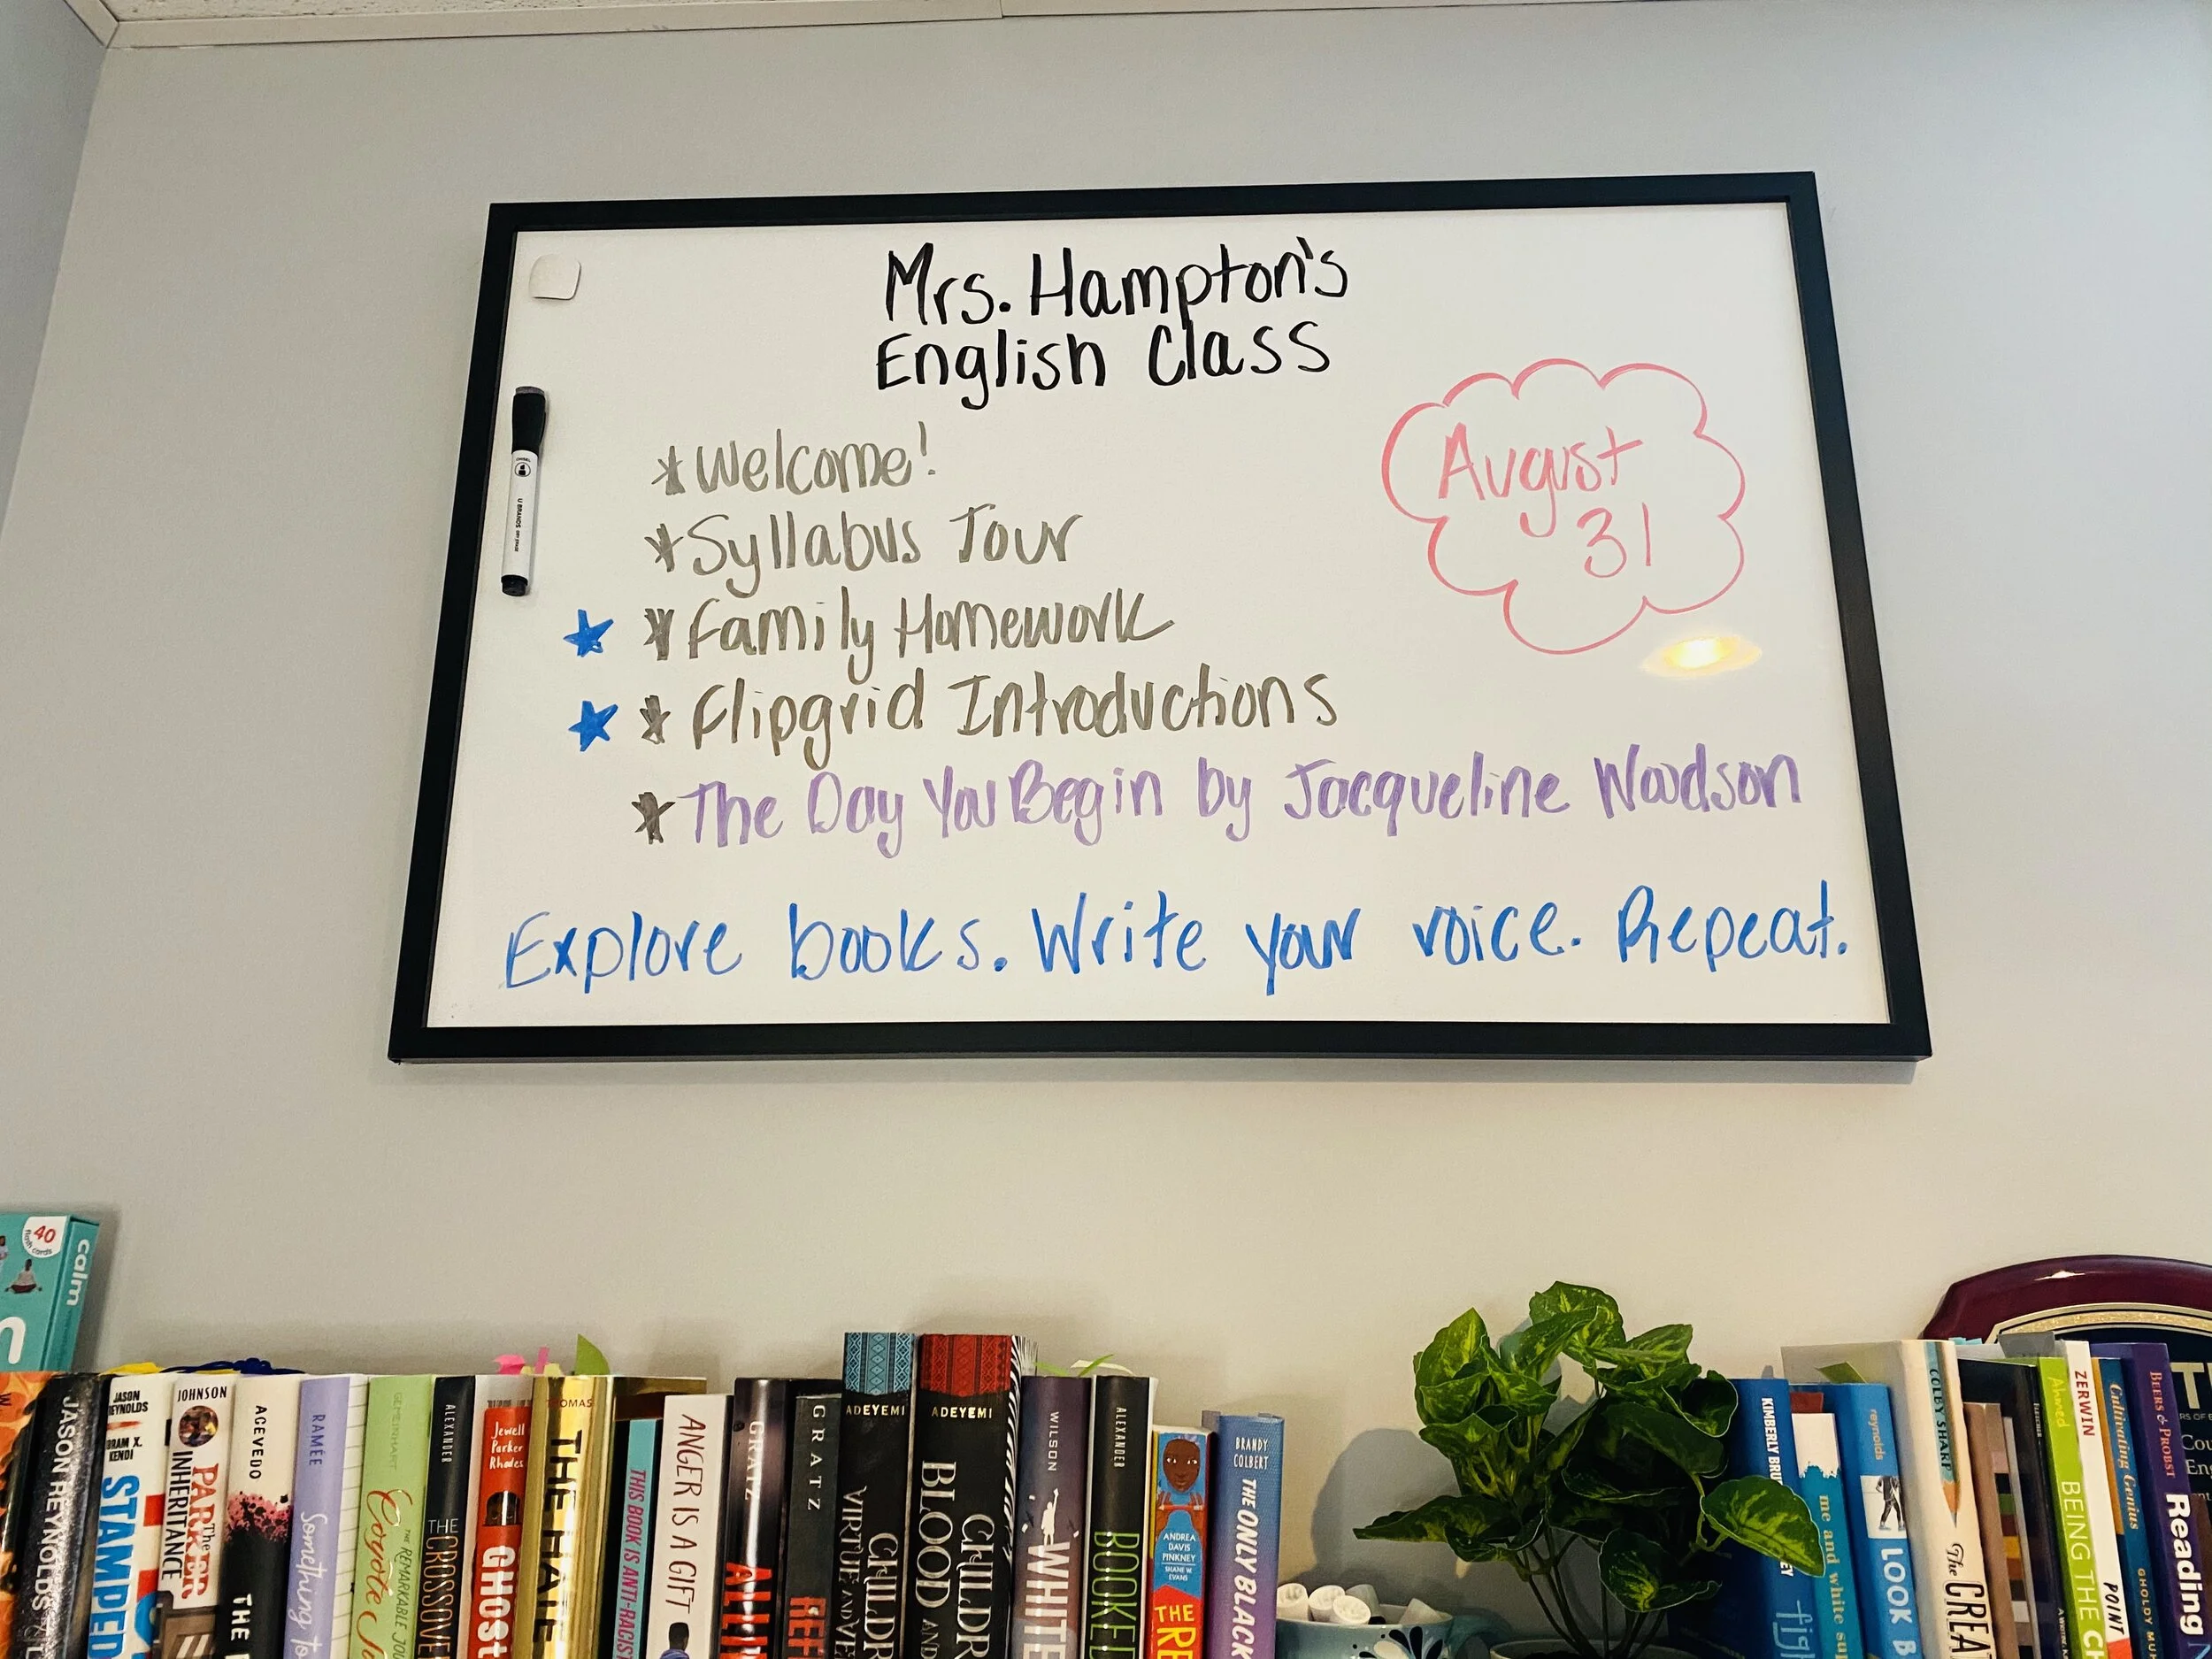 Mrs. Hampton's
English Class
August
31
*Welcome!
*Syllabus Tour
*Family Homework
*Flipgrid Introductions
*The Day You Begin by Jacqueline Woodson
Explore books. Write your voice. Repeat.
40
flash cards
calm
JASON REYNOLDS
JASON REYNOLDS
IBRAM X. KENDI
STAMPED
JOHNSON
The PARKER INHERITANCE
ACEVEDO
THE
RAMÉE
Something to
GEMEINHART
THE REMARKABLE JOU
Coyote
ALEXANDER
THE CROSSOVE
Jewell Parker Rhodes
GHOST
THOMAS
THE HATE
THIS BOOK IS ANTI-RACIST
ANGER IS A GIFT
GRATZ
ALLI
GRATZ
REF
ADEYEMI
CHILDR
VIRTUE AND VE
ADEYEMI
CHILDR
BLOOD AND
WILSON
WHITE
ALEXANDER
BOOKED
ANDREA DAVIS PINKNEY
SHANE W. EVANS
THE RE
BRANDY COLBERT
THE ONLY BLACK
KIMBERLY BRU
EY
figh
me and white su
reynolds
LOOK B
COLBY SHARP
The CREA
Ahmed
BEING THE CH
ZERWIN
POINT
Cultivating Genius
GHOLDY MUH
BEERS & PROBST
Reading